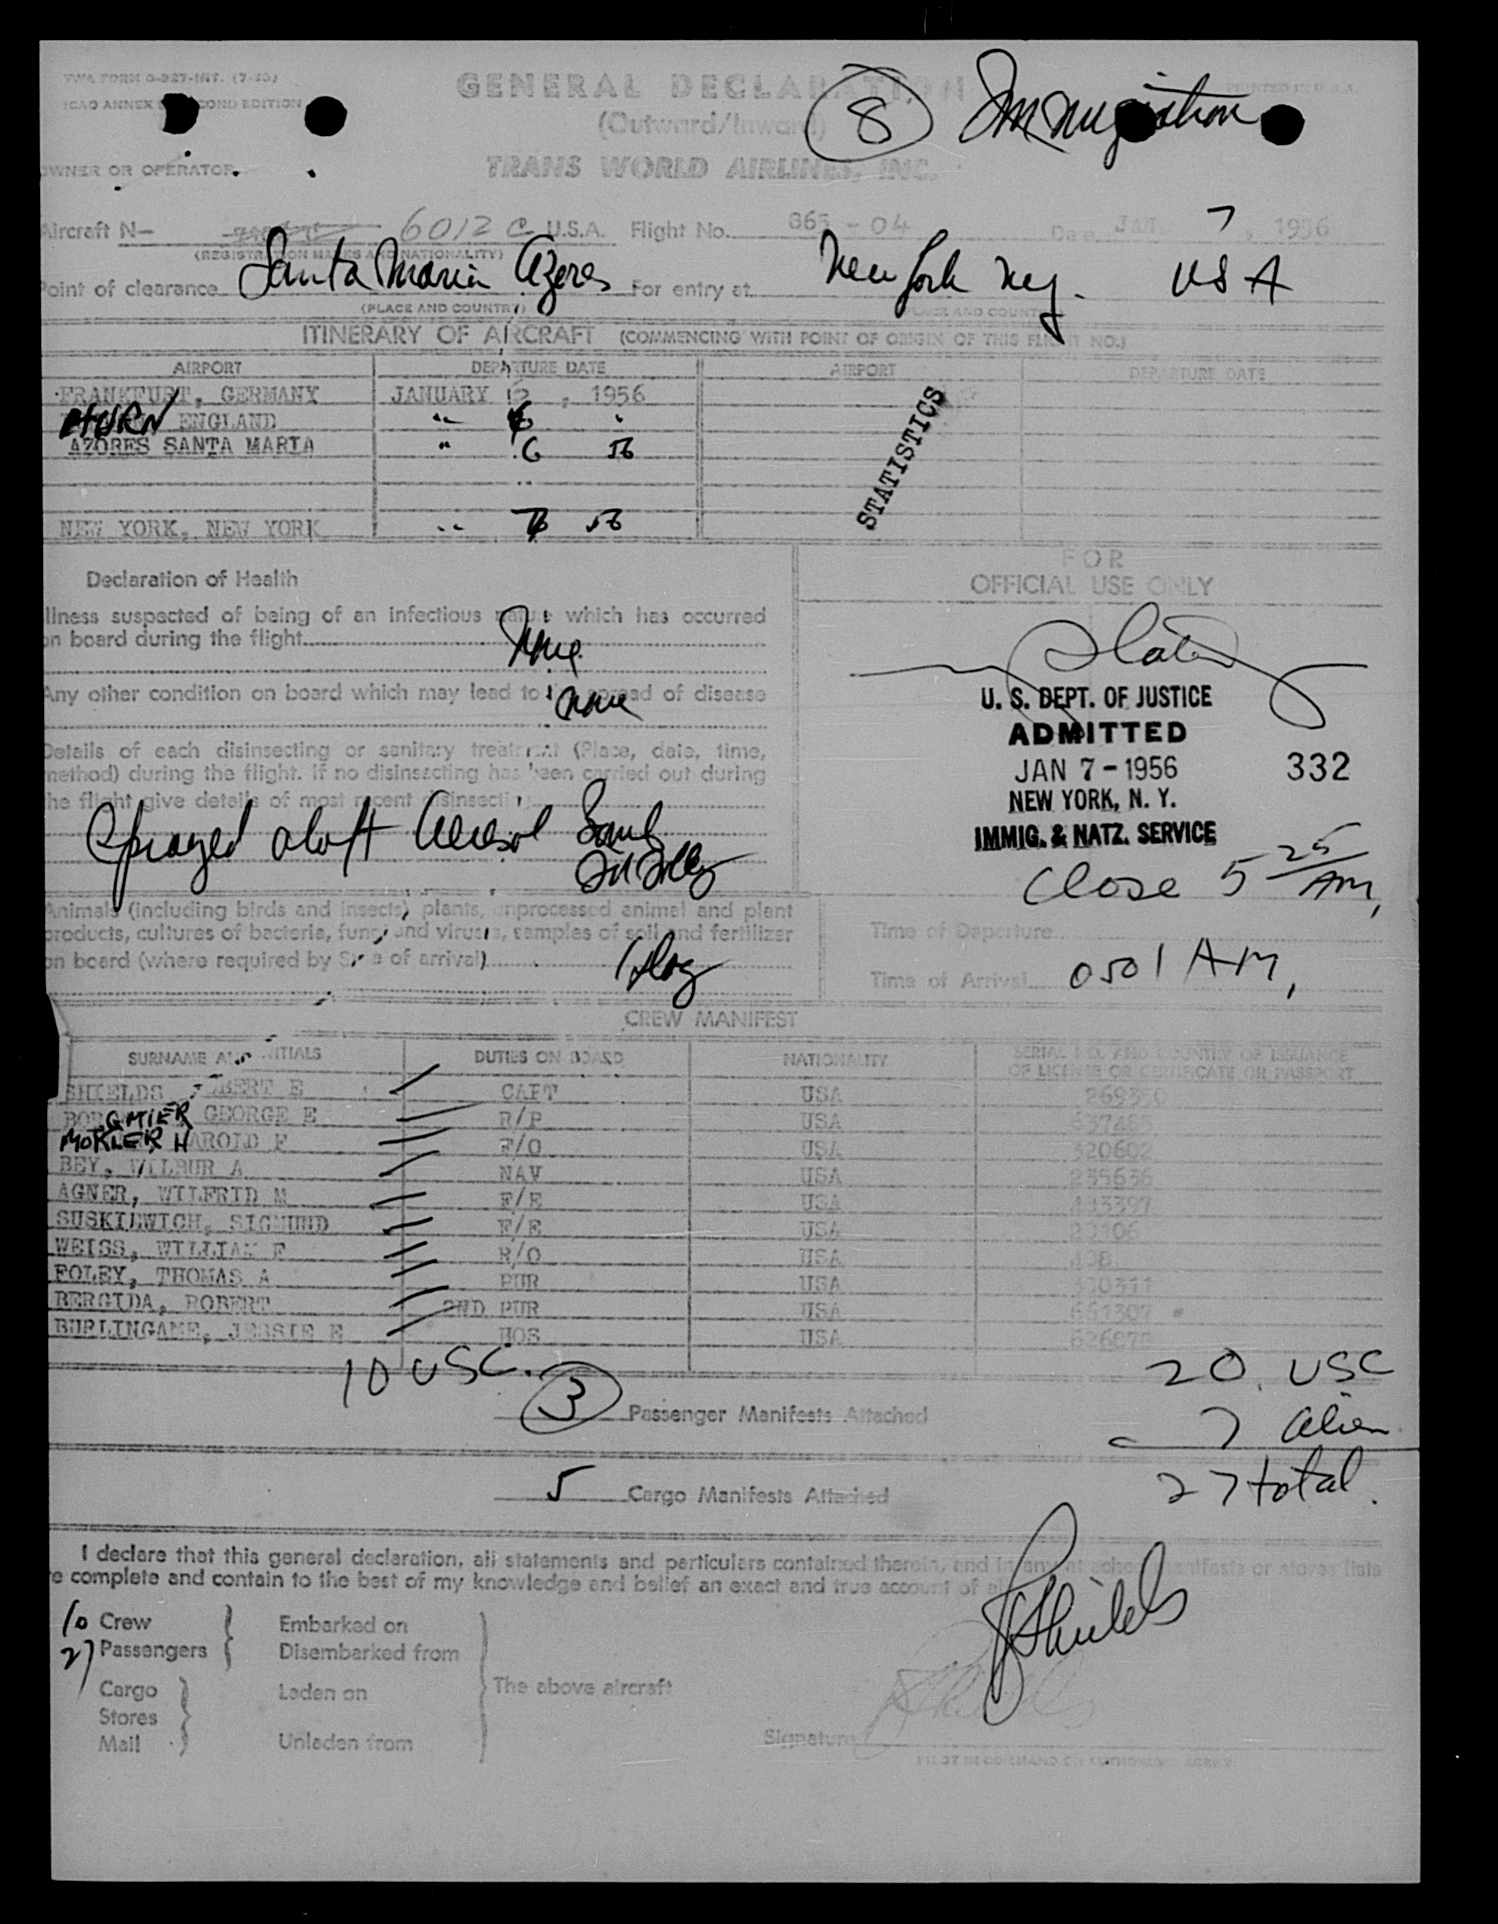 TWA FORM O-927-INT.
ICAO ANNEX SECOND EDITION
GENERAL DECLARATION
(Outward/Inward)
8 Immigration
PRINTED IN U.S.A.
OWNER OR OPERATOR
TRANS WORLD AIRLINES, INC.
Aircraft N— 6012 C U.S.A. Flight No. 865 - 04 Date JAN. 7, 1956
(REGISTRATION MARKS AND NATIONALITY)
Point of clearance Santa Maria Azores For entry at New York N.Y. USA
(PLACE AND COUNTRY) (PLACE AND COUNTRY)
ITINERARY OF AIRCRAFT (COMMENCING WITH POINT OF ORIGIN OF THIS FLIGHT NO.)
AIRPORT DEPARTURE DATE AIRPORT DEPARTURE DATE
FRANKFURT, GERMANY JANUARY 6, 1956
HURN ENGLAND " 6
AZORES SANTA MARIA " 6 56
NEW YORK, NEW YORK " 7 56
STATISTICS
Declaration of Health
FOR
OFFICIAL USE ONLY
Illness suspected of being of an infectious nature which has occurred
on board during the flight None
Any other condition on board which may lead to the spread of disease
None
Details of each disinsecting or sanitary treatment (Place, date, time,
method) during the flight. If no disinsecting has been carried out during
the flight give details of most recent disinsecting
Sprayed aloft Aerosol Bomb
U. S. DEPT. OF JUSTICE
ADMITTED
JAN 7 - 1956 332
NEW YORK, N. Y.
IMMIG. & NATZ. SERVICE
Close 5 25 AM,
Animals (including birds and insects) plants, unprocessed animal and plant
products, cultures of bacteria, fungi and viruses, samples of soil and fertilizer
on board (where required by State of arrival) 1 dog
Time of Departure
Time of Arrival 0501 AM,
CREW MANIFEST
SURNAME AND INITIALS DUTIES ON BOARD NATIONALITY SERIAL NO. AND COUNTRY OF ISSUANCE
OF LICENSE OR CERTIFICATE OR PASSPORT
SHIELDS ROBERT E CAPT USA
GEORGE E R/P USA
MOKLER HAROLD F F/O USA 320602
BEY, WILBUR A NAV USA 235636
AGNER, WILFRID M F/E USA
SUSKIEWICH, SIGMUND F/E USA
WEISS, WILLIAM F R/O USA
FOLEY, THOMAS A PUR USA
BERGIDA, ROBERT 2ND PUR USA 661307
BURLINGAME, JESSIE E HOS USA
10 USC.
20 USC
3 Passenger Manifests Attached
7 alien
5 Cargo Manifests Attached
27 total.
I declare that this general declaration, all statements and particulars contained therein, and in any manifests or stores lists
are complete and contain to the best of my knowledge and belief an exact and true account of all
10 Crew Embarked on
27 Passengers Disembarked from
Cargo Laden on The above aircraft
Stores
Mail Unladen from
Shields
Signature
PILOT IN COMMAND OR AUTHORIZED AGENT